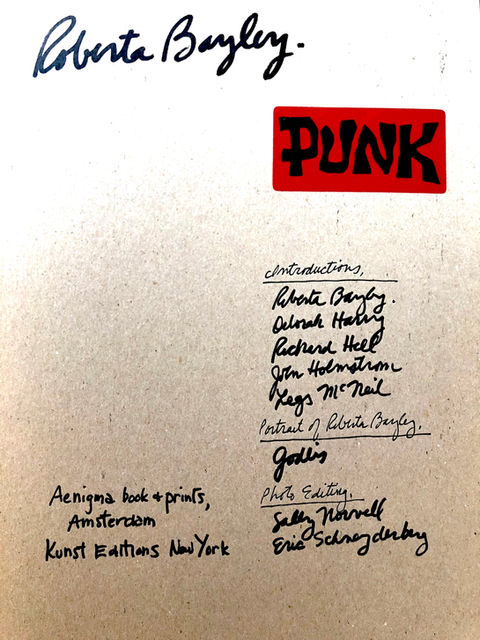 Roberta Bayley.
PUNK
Introductions,
Roberta Bayley.
Deborah Harry
Richard Hell
John Holmstrom
Legs McNeil
Portrait of Roberta Bayley,
Godlis
Photo Editing,
Sally Norvell
Eric Schneyderberg
Aenigma book & prints,
Amsterdam
Kunst Editions New York